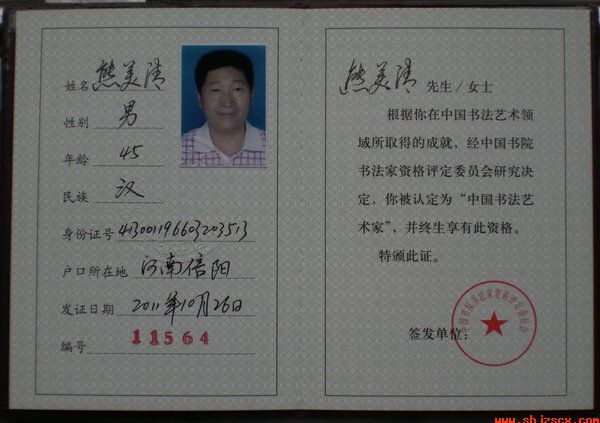 姓名 熊美清
性别 男
年龄 45
民族 汉
身份证号 413001196603203513
户口所在地 河南信阳
发证日期 2011年10月26日
编号 11564
熊美清 先生/女士
根据你在中国书法艺术领
域所取得的成就，经中国书院
书法家资格评定委员会研究决
定，你被认定为“中国书法艺
术家”，并终生享有此资格。
特颁此证。
签发单位：
中国书院书法家资格评定委员会
www.shjzscx.com